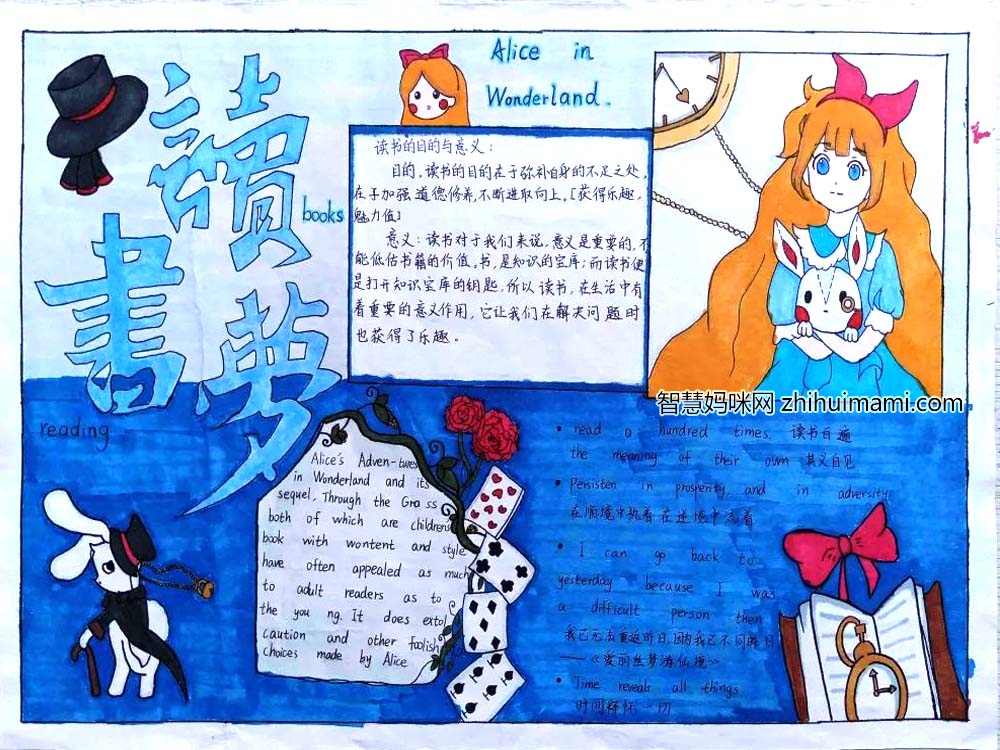 讀
書
夢
books
reading
Alice in
Wonderland.
读书的目的与意义：
目的，读书的目的在于弥补自身的不足之处，
在于加强道德修养，不断进取向上。[获得乐趣，
魅力值]
意义：读书对于我们来说，意义是重要的，不
能低估书籍的价值，书，是知识的宝库；而读书便
是打开知识宝库的钥匙。所以读书，在生活中有
着重要的意义作用，它让我们在解决问题时
也获得了乐趣。
智慧妈咪网 zhihuimami.com
Alice's Adven-tures
in Wonderland and its
sequel, Through the Gra ss
both of which are childrens
book with wontent and style
have often appealed as much
to adult readers as to
the you ng. It does extol
caution and other foolish
choices made by Alice
• read a hundred times, 读书百遍
the meaning of their own 其义自见
• Persisten in prosperity, and in adversity
在顺境中执着,在逆境中流着
• I can go back to
yesterday because I was
a difficult person then
我已无去重返昨日,因为我已不同昨日
——《爱丽丝梦游仙境》
• Time reveals all things
时间释怀一切